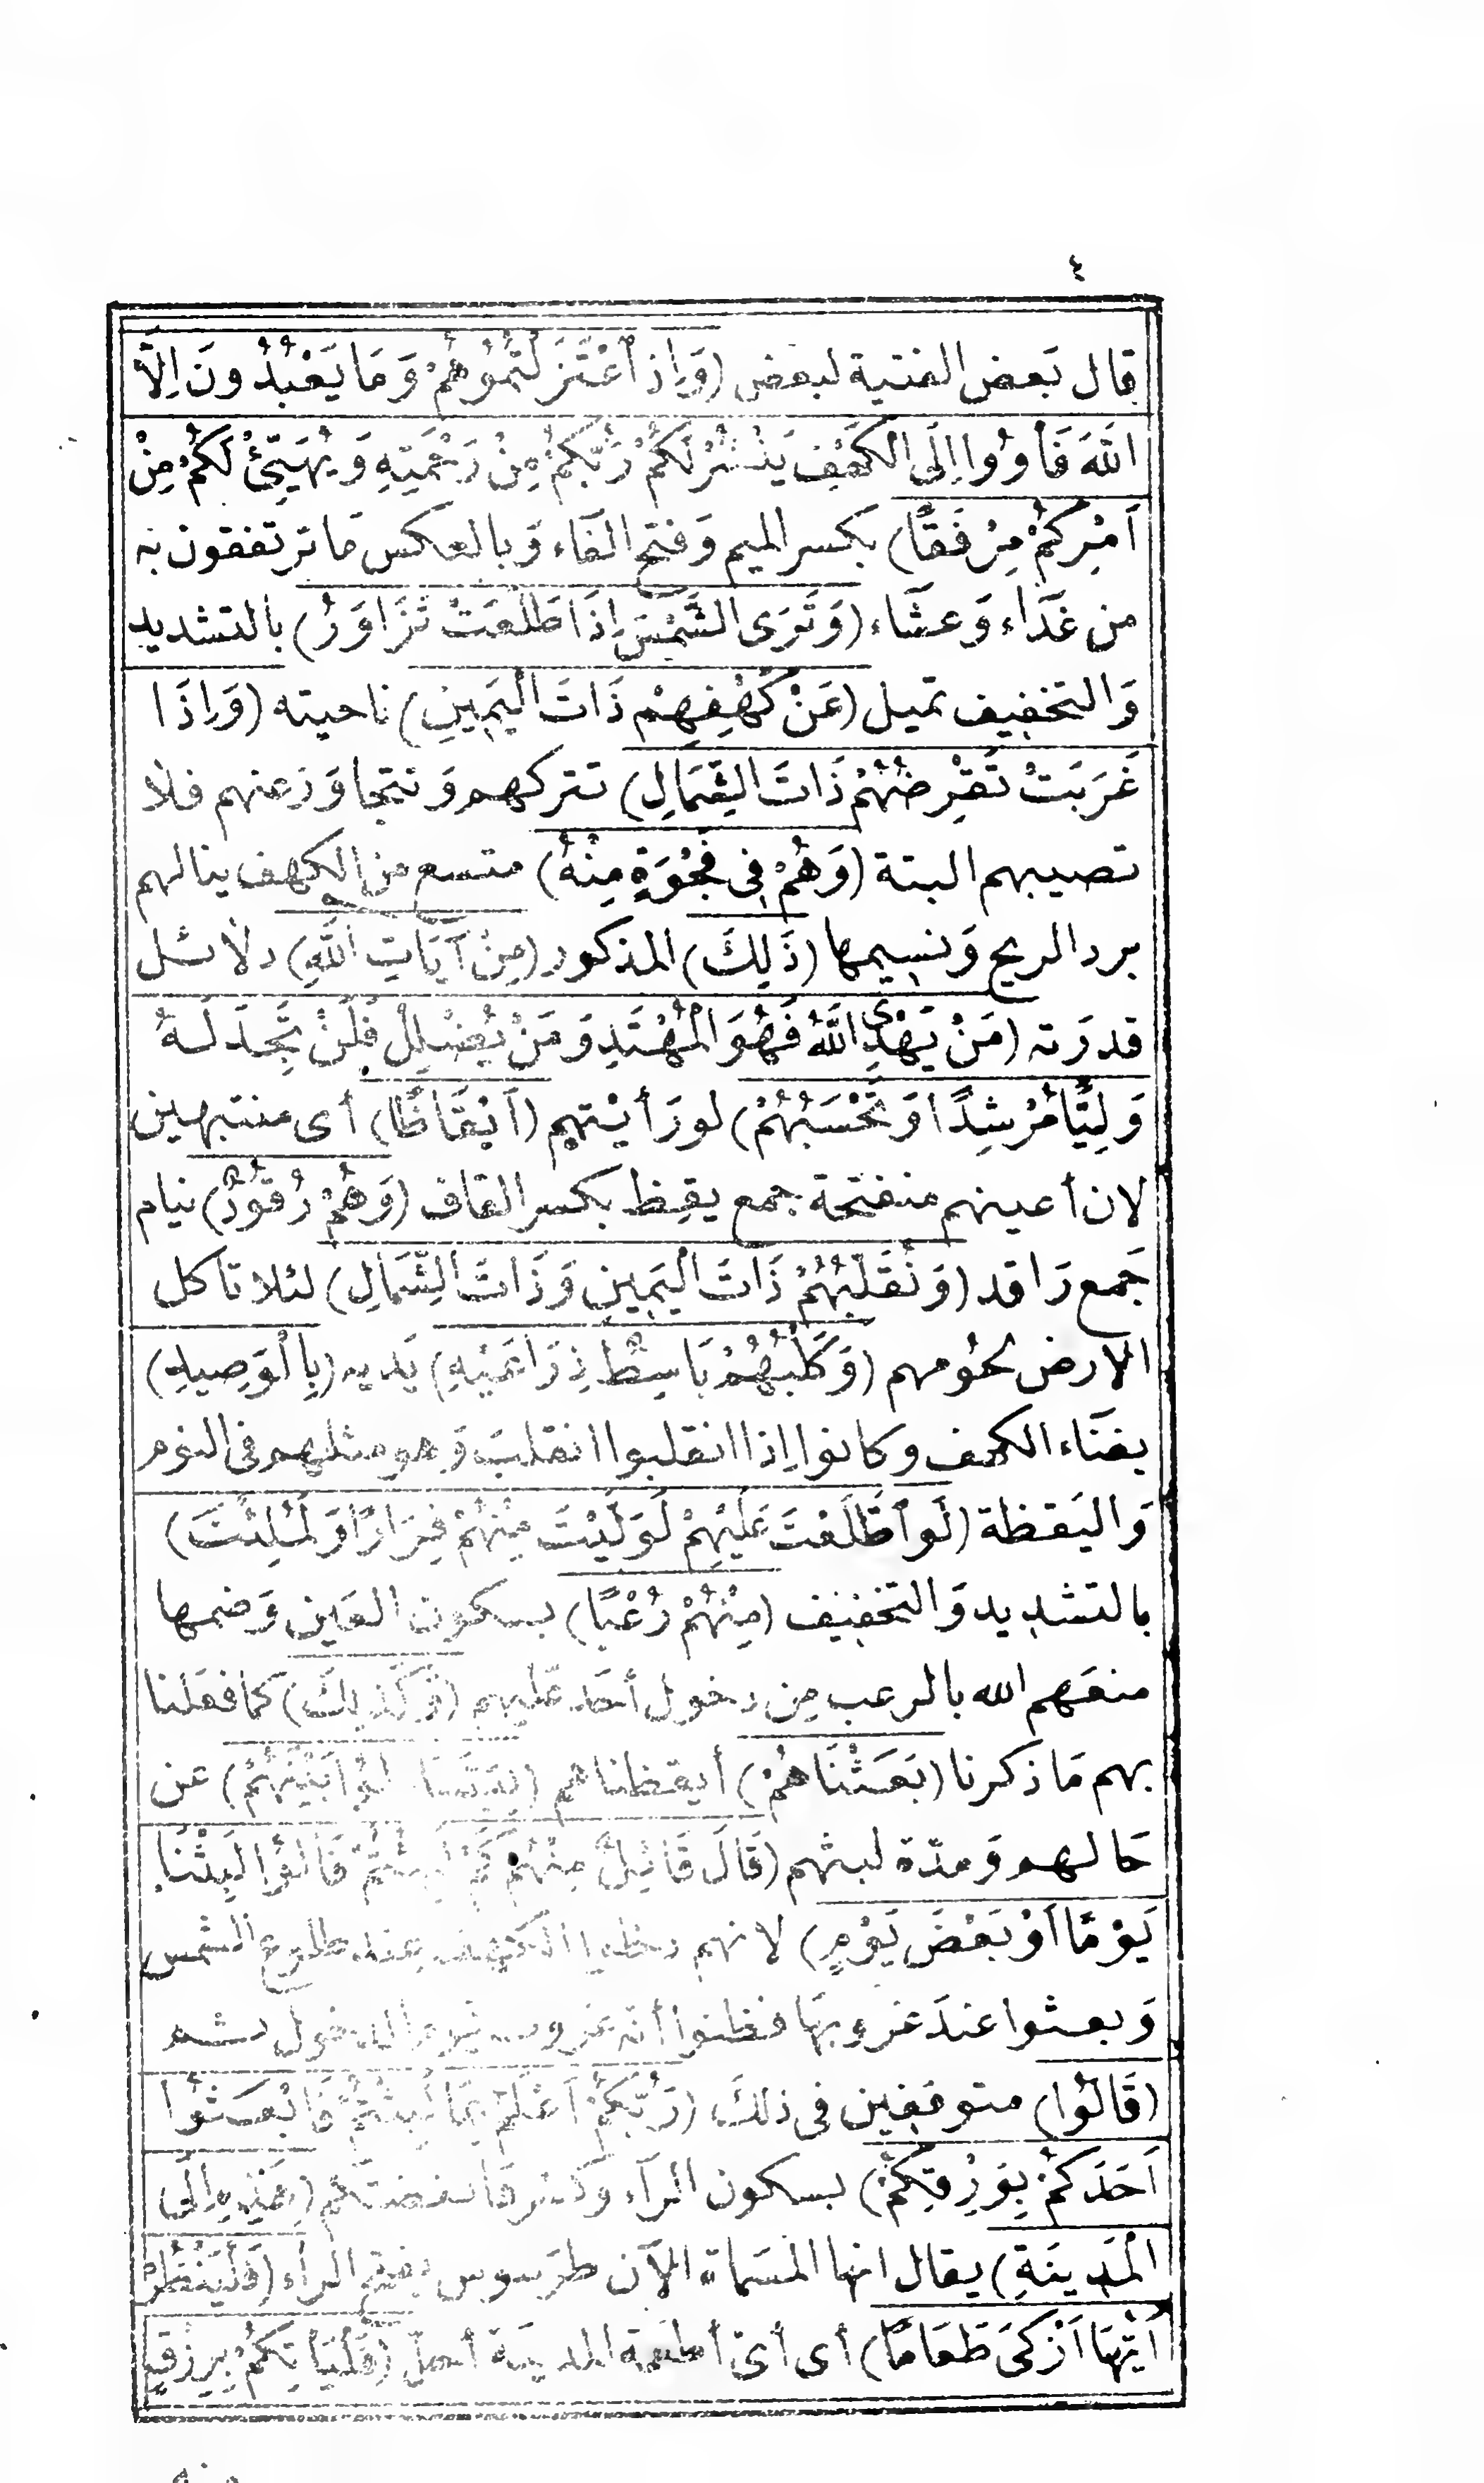 ٤
قال بَعض الفتية لبعض (وَإِذِ ٱعْتَزَلْتُمُوهُمْ وَمَا يَعْبُدُونَ اِلَّا
اللهَ فَأْوُوا اِلَى الْكَهْفِ يَنْشُرْ لَكُمْ رَبُّكُمْ مِنْ رَحْمَتِهِ وَيُهَيِّئْ لَكُمْ مِنْ
اَمْرِكُمْ مِرْفَقًا) بكسر الميم وَفتح الفاء وَبالعكس مَا ترتفقون به
من غَدَاء وَعشَاء (وَتَرَى الشَّمْسَ اِذَا طَلَعَتْ تَزَاوَرُ) بالتشديد
وَالتخفيف تميل (عَنْ كَهْفِهِمْ ذَاتَ الْيَمِينِ) ناحيته (وَاِذَا
غَرَبَتْ تَقْرِضُهُمْ ذَاتَ الشِّمَالِ) تتركهم وَتتجاوَز عنهم فلا
تصيبهم البتة (وَهُمْ فِى فَجْوَةٍ مِنْهُ) متسع من الكهف ينالهم
برد الريح وَنسيمها (ذَلِكَ) المذكور (مِنْ آيَاتِ اللهِ) دلائل
قدرَته (مَنْ يَهْدِى اللهُ فَهُوَ الْمُهْتَدِ وَمَنْ يُضْلِلْ فَلَنْ تَجِدَ لَهُ
وَلِيًّا مُرْشِدًا وَتَحْسَبُهُمْ) لو رَأيْتهم (اَيْقَاظًا) أى منتبهين
لان أعينهم منفتحة جمع يقِظ بكسر القاف (وَهُمْ رُقُودٌ) نيام
جَمع رَاقد (وَنُقَلِّبُهُمْ ذَاتَ الْيَمِينِ وَذَاتَ الشِّمَالِ) لئلا تأكل
الارض لحُومهم (وَكَلْبُهُمْ بَاسِطٌ ذِرَاعَيْهِ) يَديه (بِالْوَصِيدِ)
بفنَاء الكهف وكانوا اِذا انقلبوا انقلبَ وَهو مثلهم فى النوم
وَاليَقظة (لَوِ ٱطَّلَعْتَ عَلَيْهِمْ لَوَلَّيْتَ مِنْهُمْ فِرَارًا وَلَمُلِئْتَ)
بالتشديد وَالتخفيف (مِنْهُمْ رُعْبًا) بسكون العَين وَضمها
منعَهم الله بالرعب مِن دخول أحَد عَليهم (وَكَذَلِكَ) كما فعَلنا
بهم مَا ذكرنا (بَعَثْنَاهُمْ) أيقظناهم (لِيَتَسَاءَلُوا بَيْنَهُمْ) عن
حَالهم وَمدّة لبثهم (قَالَ قَائِلٌ مِنْهُمْ كَمْ لَبِثْتُمْ قَالُوا لَبِثْنَا
يَوْمًا اَوْ بَعْضَ يَوْمٍ) لانهم دخلوا الكهف عند طلوع الشمس
وَبعثوا عندَ غروبهَا فظنوا أنه غروب يوم الدخول ثم
(قَالُوا) متوقفين فى ذلكَ (رَبُّكُمْ اَعْلَمُ بِمَا لَبِثْتُمْ فَابْعَثُوا
اَحَدَكُمْ بِوَرِقِكُمْ) بسكون الرآء وَكسرهَا بفضتكم (هَذِهِ اِلَى
الْمَدِينَةِ) يقال انها المُسَمَاة الآن طرَسوس بفتح الرآء (فَلْيَنْظُرْ
اَيُّهَا اَزْكَى طَعَامًا) أى أىّ أطعمة المدينة أحلّ (فَلْيَأْتِكُمْ بِرِزْقٍ
منه